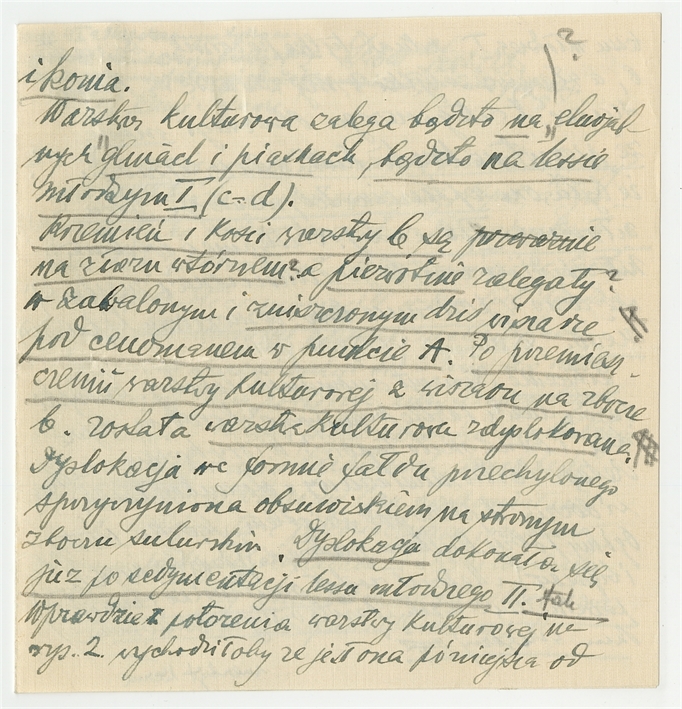 ?
i konia.
Warstwa kulturowa zalega bądźto na "eluwjal-
nych" glinach i piaskach, bądźto na lessie
młodszym I (c=d).
Krzemień i kości warstwy b są przeważnie
na złożu wtórnem? a pierwotnie zalegały?
w zawalonym i zniszczonym dziś wiszarze
pod cenomanem w punkcie A. Po przemiesz-
czeniu warstwy kulturowej z wiszaru na zbocze
b. została warstwa kulturowa zdyslokowana.
Dyslokacja we formie fałdu przechylonego
spowodowana obsuwiskiem na stromym
zboczu sylurskim. Dyslokacja dokonała się
już po sedymentacji lessu młodszego II. tak
Wprawdzie z położenia warstwy kulturowej na
ryc. 2. wychodziłoby że jest ona późniejsza od